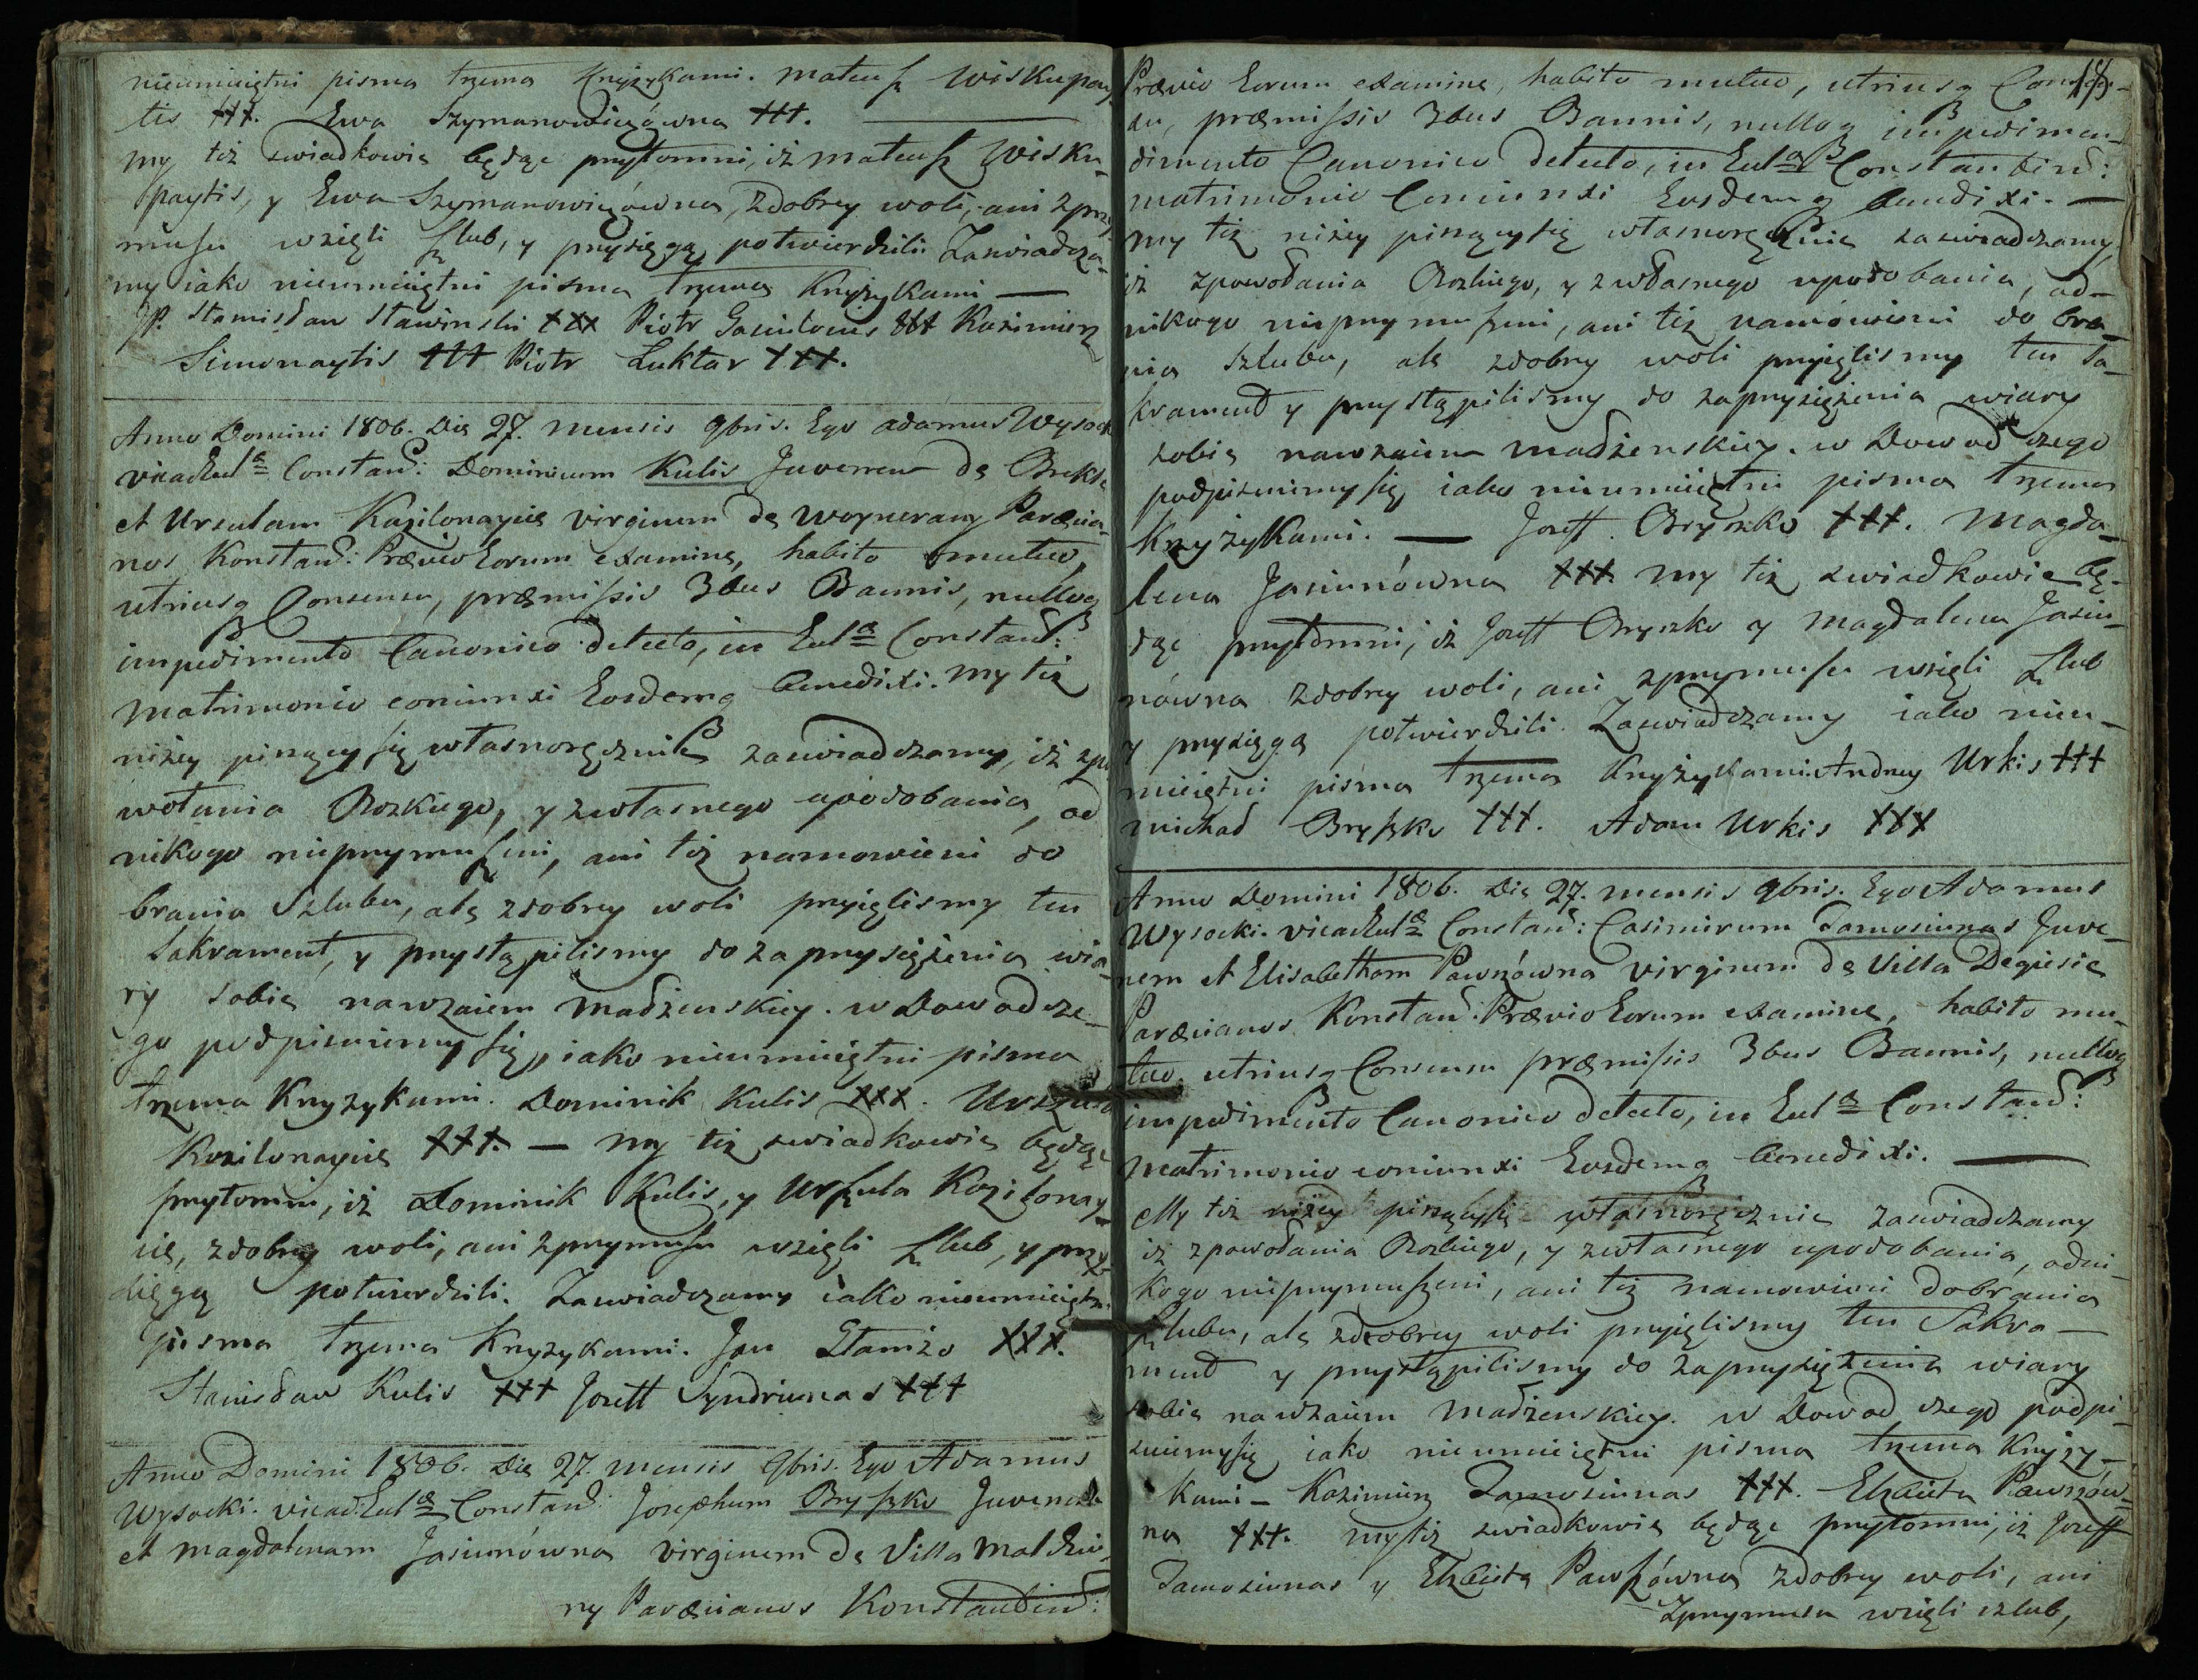 nieumieiętni pisma trzema Krzyżykami. Mateusz Wiskupay-
tis +++. Ewa Szymanowiczówna +++.
my też swiadkowie będąc przytomni, iż Mateusz Wisku-
paytis, y Ewa Szymanowiczówna, zdobrey woli, ani zprzy-
musu wzięli szlub, y przysięgą potwierdzili. Zaswiadcza-
my iako nieumieiętni pisma trzema Krzyżykami —
JP. Stanisław Stawinski +++ Piotr +++ Kazimierz
Simonaytis +++ Piotr Luktar +++.
Anno Domini 1806. Die 27. mensis 9bris. Ego Adamus Wysock
Constand: Dominicum Kulis Juvenem de
et Ursulam Kozilonaycie virginem de Woynerany Paræcia-
nos Konstand: Prævio Eorum examine, habito mutuo,
utriusq Consensu, præmissis 3bus Bannis, nulloq
impedimento Canonico detecto, in Eccla Constand:
Matrimonio coniunxi Eosdemq benedixi. My też
niżey piszący się własnoręcznie zaswiadczamy, iż zpo
wołania Bozkiego, y zwłasnego upodobania, od
nikogo nieprzymuszeni, ani też namowieni do
brania Szlubu, ale zdobrey woli przyięlismy ten
Sakrament, y przystąpilismy do zaprzysiężenia wia-
ry sobie nawzaiem Madżenskiey. w Dowod cze-
go podpisuiemy się, iako nieumieiętni pisma
trzema Krzyżykami. Dominik Kulis +++. Urszula
Kozilonaycie +++. — my też swiadkowie będąc
przytomni, iż Dominik Kulis, y Urszula Kozilonay-
cie, zdobrey woli, ani zprzymusu wzięli szlub, y przy-
sięgą potwierdzili. Zaswiadczamy iako nieumieiętni
pisma trzema Krzyżykami. Jan +++.
Stanisław Kulis +++ Joseff Syndriunas +++
Anno Domini 1806. Die 27. mensis 9bris. Ego Adamus
Wysocki. Constand: Josephum Bryszko Juvenem
et Magdalenam Jasiunówna virginem de Villa
ny Paræcianos Konstantind:
18
Prævio Eorum examine, habito mutuo, utriusq Consen-
su, præmissis 3bus Bannis, nulloq impedimen-
dimento Canonico detecto, in Eccla Constantind:
matrimonio Coniunxi Eosdemq benedixi. —
my też niżey piszący się własnoręcznie zaswiadczamy,
iż zpowołania Bozkiego, y zwłasnego upodobania, od-
nikogo nieprzymuszeni, ani też namówieni do bra-
nia Szlubu, ale zdobrey woli przyięlismy ten Sa-
krament y przystąpilismy do zaprzysiężenia wiary
sobie nawzaiem Madżenskiey. w Dowod czego
podpisuiemy się, iako nieumieiętni pisma trzema
Krzyżykami. — Joseff Bryszko +++. Magda-
lena Jasiunówna +++. my też swiadkowie bę-
dąc przytomni, iż Joseff Bryszko y Magdalena Jasiu-
nówna zdobrey woli, ani zprzymusu wzięli szlub
y przysięgą potwierdzili. Zaswiadczamy iako nieu-
mieiętni pisma trzema Krzyżykami. Andrzey Urkis +++
Michał Bryszko +++. Adam Urkis +++
Anno Domini 1806. Die 27. mensis 9bris. Ego Adamus
Wysocki. Constand: Casimirum Tamosiunas Juve-
nem et Elisabetham Pawszówna virginem de Villa Degiesie
Paræcianos Konstand: Prævio Eorum examine, habito mu-
tuo. utriusq Consensu præmissis 3bus Bannis, nulloq
impedimento Canonico detecto, in Eccla Constand:
Matrimonio coniunxi Eosdemq benedixi. —
My też niżey piszący się własnoręcznie zaswiadczamy
iż zpowołania Bozkiego, y zwłasnego upodobania, odni-
kogo nieprzymuszeni, ani też namowieni dobrania
szlubu, ale zdobrey woli przyięlismy ten Sakra-
ment y przystąpilismy do zaprzysiężenia wiary
sobie nawzaiem Madżenskiey. w Dowod czego podpi-
suiemy się iako nieumieiętni pisma trzema Krzyży-
kami — Kazimierz Tamosiunas +++. Elżbieta Pawszów-
na +++. my też swiadkowie będąc przytomni, iż Joseff
Tamosiunas y Elżbieta Pawszówna zdobrey woli, ani
zprzymusu wzięli szlub,